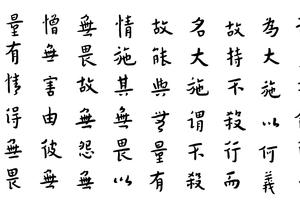 為大施以何義
故持不殺行而
名大施謂不殺
故能與無量有
情施其無畏以
無畏故無怨無
憎無害由彼無
量有情得無畏